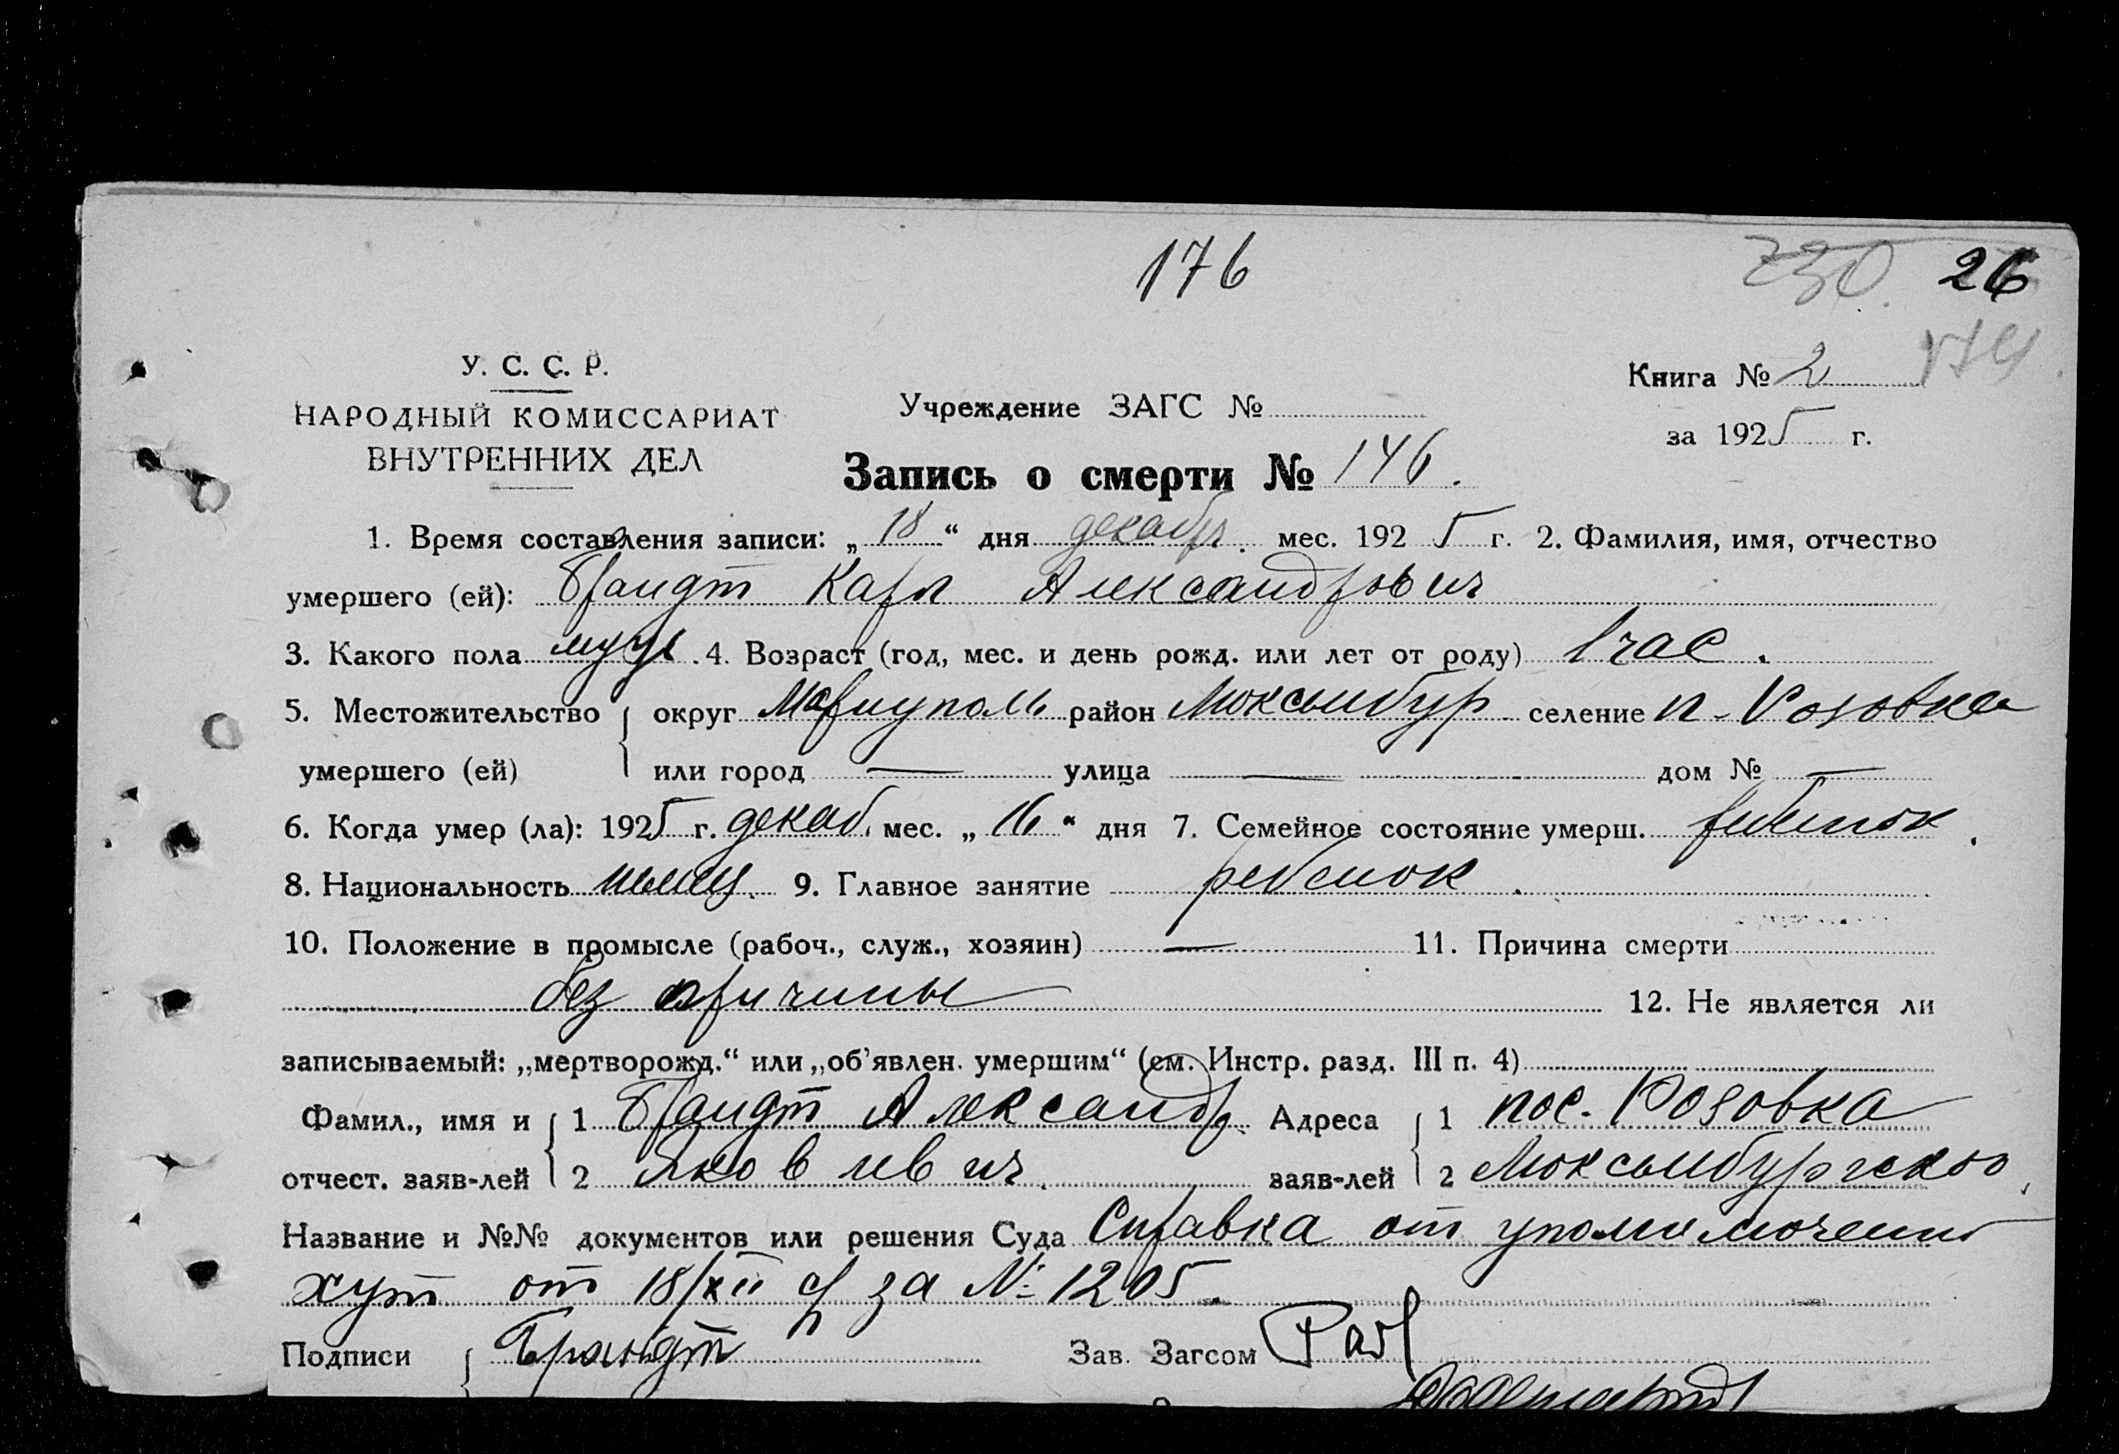 176
230. 26
174
У. С. С. Р.
НАРОДНЫЙ КОМИССАРИАТ
ВНУТРЕННИХ ДЕЛ
Учреждение ЗАГС №
Книга № 2
за 1925 г.
Запись о смерти № 146.
1. Время составления записи: „ 18 “ дня декабр. мес. 1925 г. 2. Фамилия, имя, отчество
умершего (ей): Брандт Карл Александрович
3. Какого пола муж. 4. Возраст (год, мес. и день рожд. или лет от роду) 1 час.
5. Местожительство { округ Мариуполь район Люксембур селение п. Розовка
умершего (ей) или город — улица — дом № —
6. Когда умер (ла): 1925 г. декаб. мес. „ 16 “ дня 7. Семейное состояние умерш. ребенок.
8. Национальность немец. 9. Главное занятие ребенок.
10. Положение в промысле (рабоч., служ., хозяин) — 11. Причина смерти
без причины 12. Не является ли
записываемый: „мертворожд.“ или „об’явлен. умершим“ (см. Инстр. разд. III п. 4)
Фамил., имя и { 1 Брандт Александр. Адреса { 1 пос. Розовка
отчест. заяв-лей 2 Яковлевич. заяв-лей 2 Люксембургского
Название и №№ документов или решения Суда Справка от
хут от 18/XII с/г за № 1205.
Подписи { Брандт Зав. Загсом